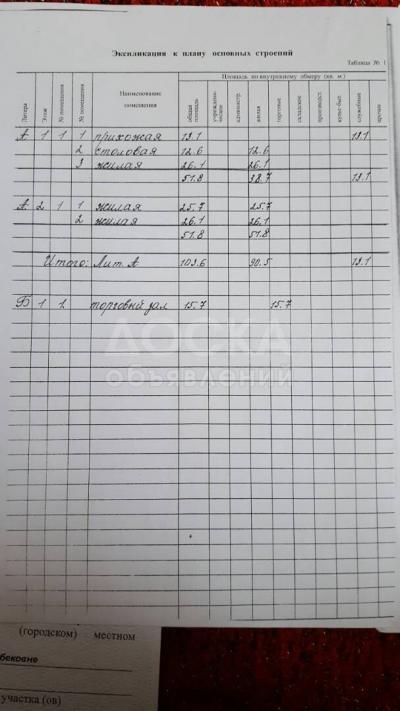 Экспликация к плану основных строений
Таблица № 1
Литера Этаж № помещения № помещения Наименование помещения Площадь по внутреннему обмеру (кв. м.)
общая площадь учрежденческая администр. жилая торговые складские производст. культ-быт. служебные прочая
А 1 1 1 прихожая 13.1 13.1
2 столовая 12.6 12.6
3 жилая 26.1 26.1
51.8 38.7 13.1
А 2 1 1 жилая 25.7 25.7
2 жилая 26.1 26.1
51.8 51.8
Итого: Лит. А 103.6 90.5 13.1
Б 1 1. торговый зал 15.7 15.7
ДОСКА
объявлений
(городском) местном
бековне
участка (ов)